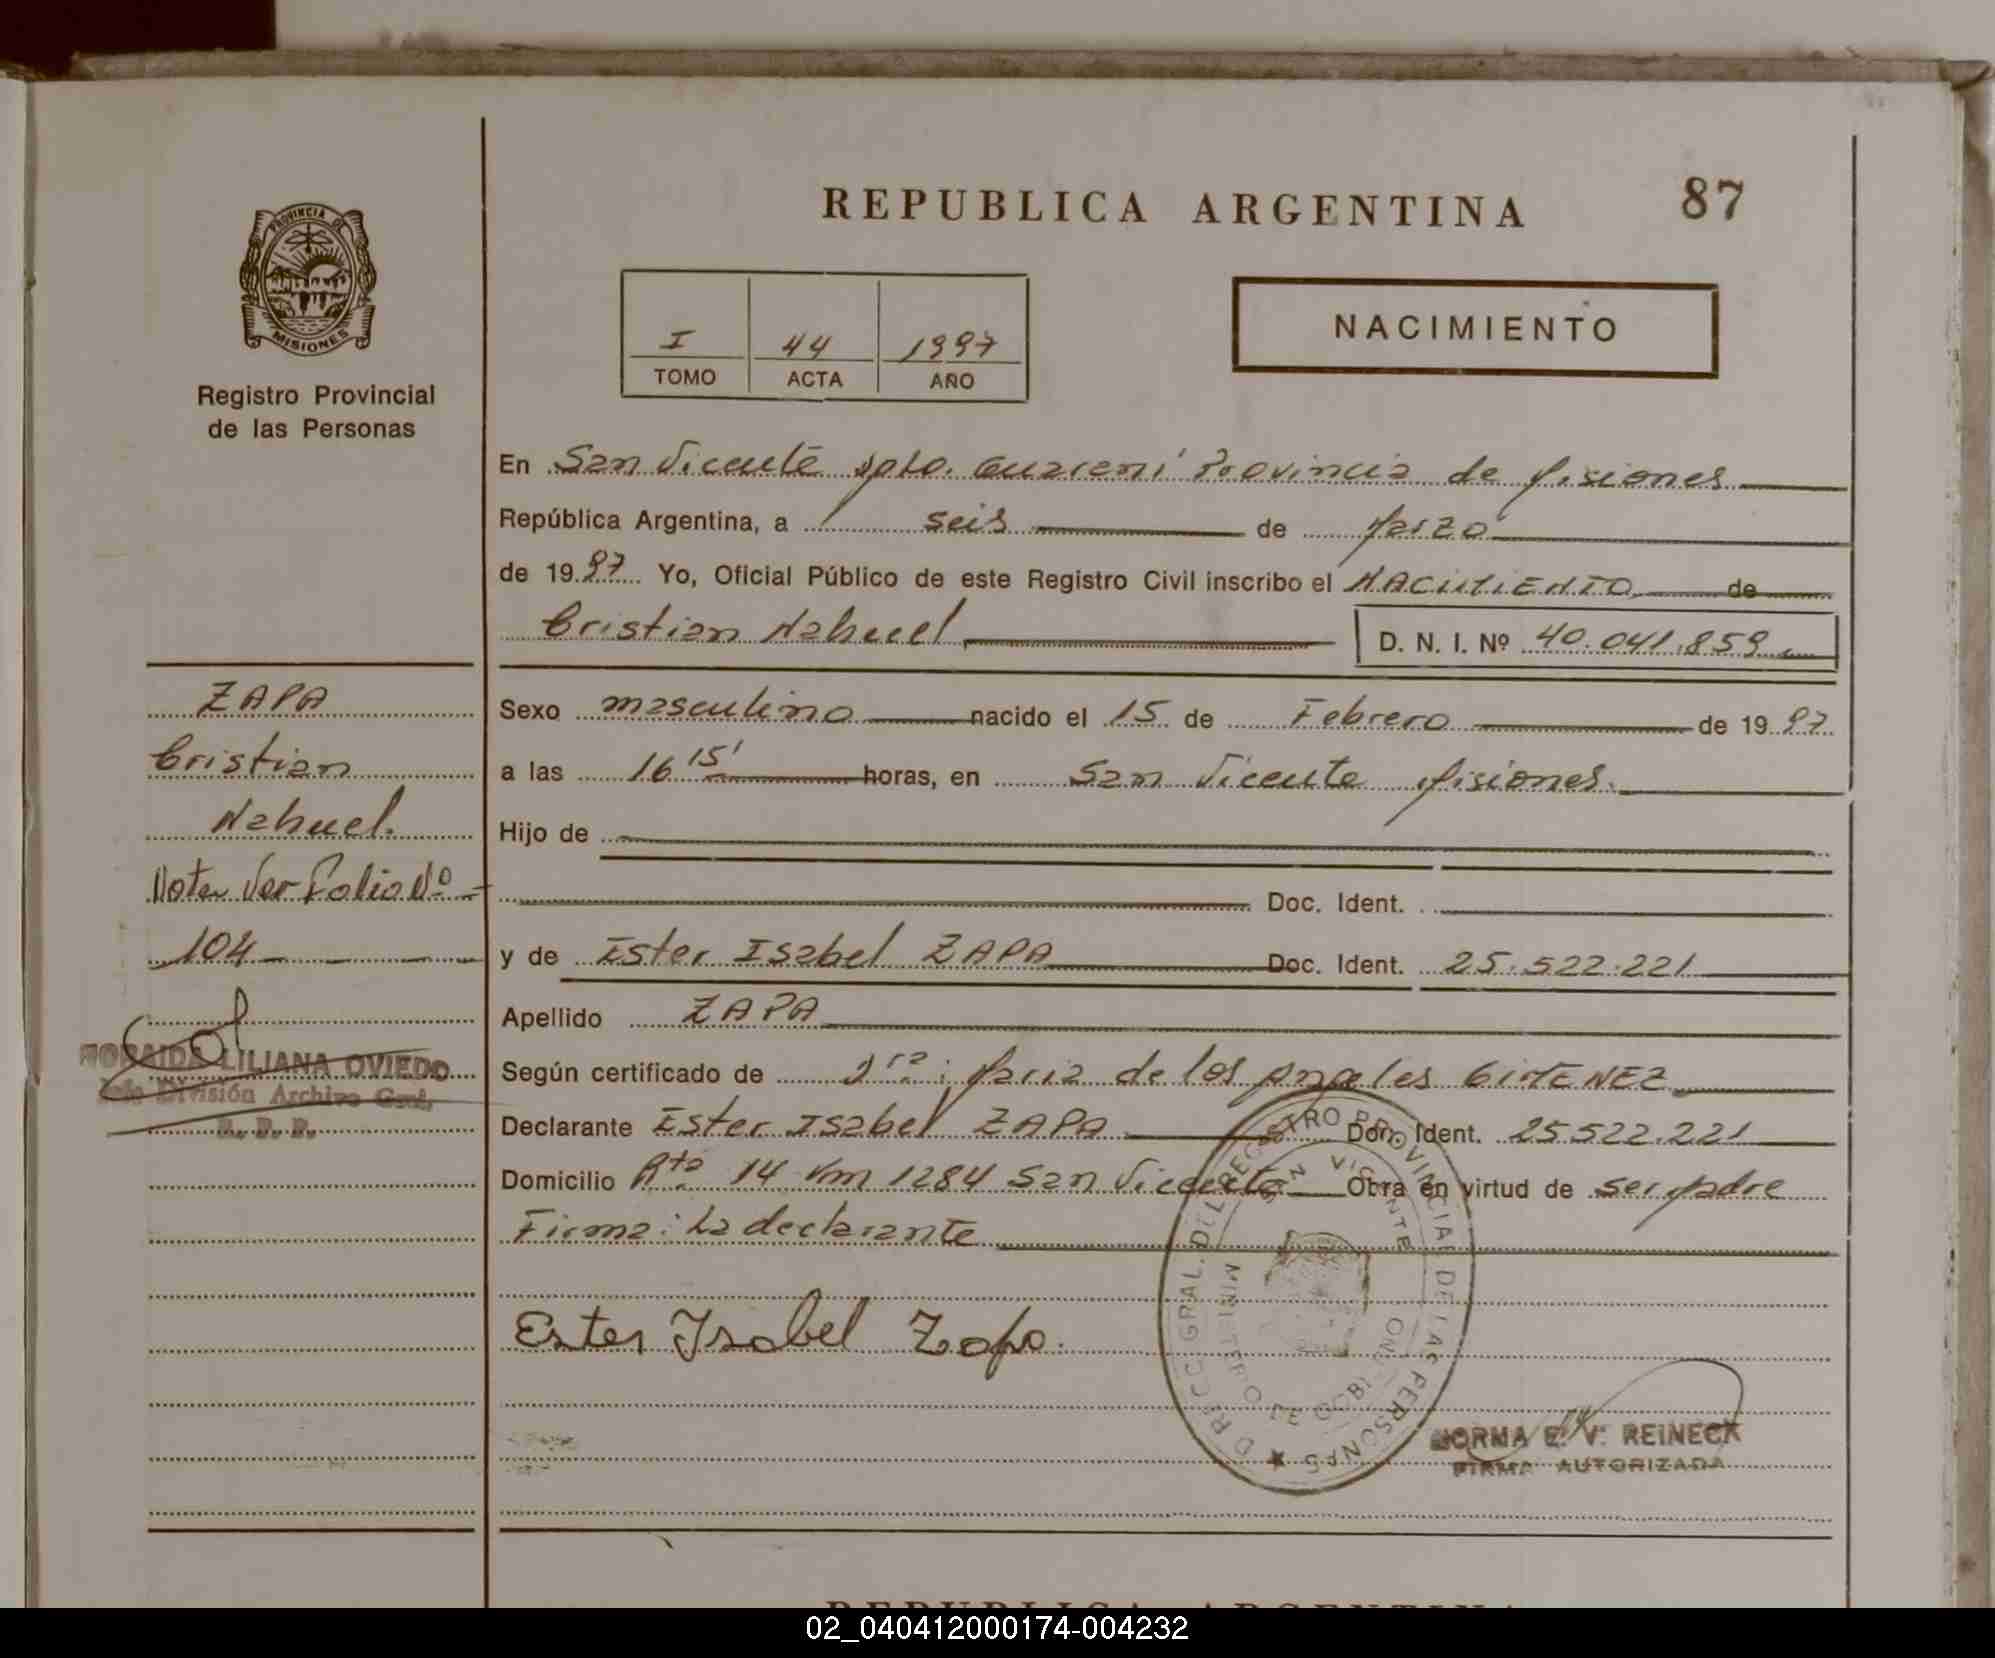 REPUBLICA ARGENTINA 87
PROVINCIA DE MISIONES
Registro Provincial
de las Personas
I 44 1997
TOMO ACTA AÑO
NACIMIENTO
En San Vicente Dpto. Guaraní Provincia de Misiones
República Argentina, a seis de Marzo
de 1997 Yo, Oficial Público de este Registro Civil inscribo el NACIMIENTO de
Cristian Nahuel D. N. I. Nº 40.041.859
ZAPA
Cristian
Nahuel.
Nota: Ver Folio Nº
104
LILIANA OVIEDO
División Archivo Gral.
R. P. P.
Sexo masculino nacido el 15 de Febrero de 1997
a las 16 15' horas, en San Vicente Misiones.
Hijo de
Doc. Ident.
y de Ester Isabel ZAPA Doc. Ident. 25.522.221
Apellido ZAPA
Según certificado de Dra: Maria de los Angeles GIMENEZ
Declarante Ester Isabel ZAPA Doc. Ident. 25.522.221
Domicilio Rta 14 Km 1284 San Vicente Obra en virtud de ser madre
Firma: La declarante
Ester Isabel Zapa.
DIRECC. GRAL. DEL REGISTRO PROVINCIAL DE LAS PERSONAS
SAN VICENTE
MINISTERIO DE GOBIERNO
NORMA E. V. REINECK
FIRMA AUTORIZADA
REPUBLICA ARGENTINA
02_040412000174-004232